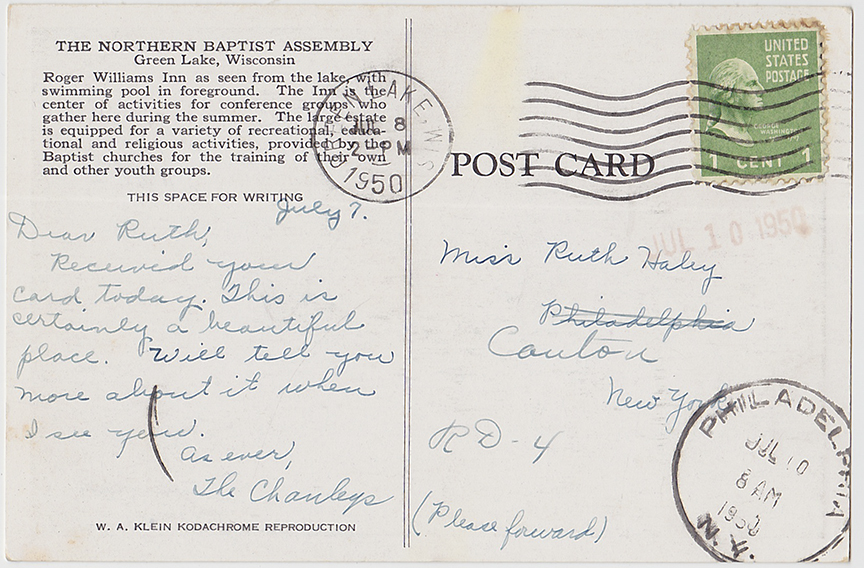 THE NORTHERN BAPTIST ASSEMBLY
Green Lake, Wisconsin
Roger Williams Inn as seen from the lake, with
swimming pool in foreground. The Inn is the
center of activities for conference groups who
gather here during the summer. The large estate
is equipped for a variety of recreational, educa-
tional and religious activities, provided by the
Baptist churches for the training of their own
and other youth groups.
THIS SPACE FOR WRITING
July 7.
Dear Ruth,
Received your
card today. This is
certainly a beautiful
place. Will tell you
more about it when
I see you.
As ever,
The
W. A. KLEIN KODACHROME REPRODUCTION
GREEN LAKE, WIS.
JUL 8
2 PM
1950
POST CARD
UNITED
STATES
POSTAGE
GEORGE
WASHINGTON
1 CENT 1
JUL 10 1950
Miss Ruth Haley
Philadelphia
Canton
New York
RD-4
(Please forward)
PHILADELPHIA
JUL 10
8 AM
1950
N.Y.